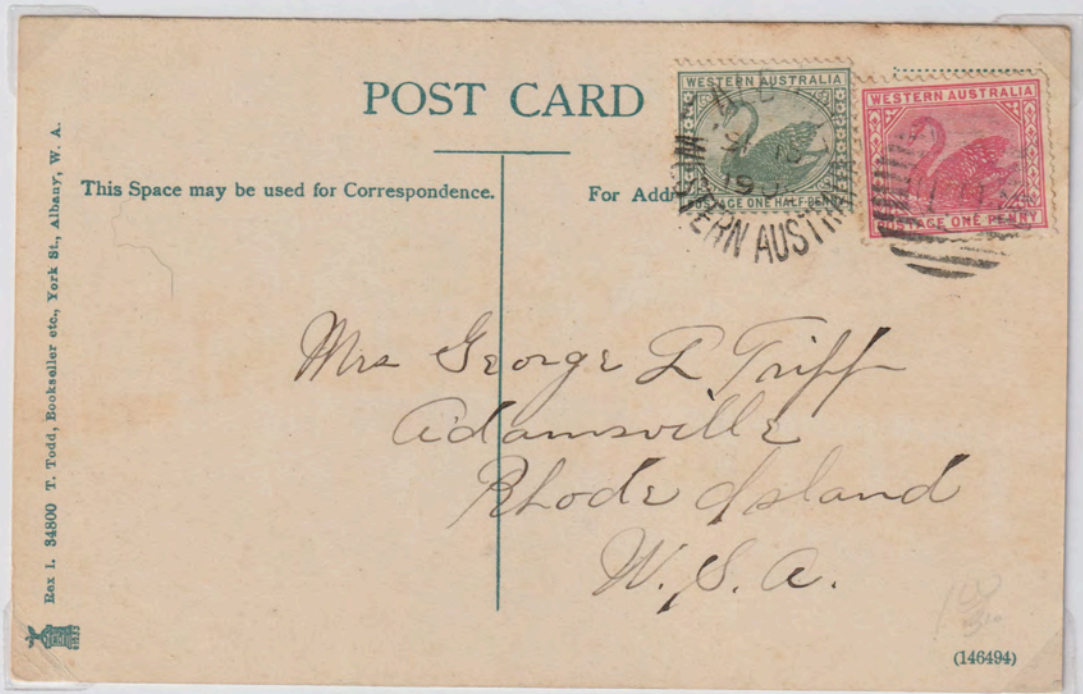 POST CARD
This Space may be used for Correspondence.
For Addr
WESTERN AUSTRALIA
POSTAGE ONE HALF-PENNY
WESTERN AUSTRALIA
POSTAGE ONE PENNY
WESTERN AUSTRALIA
Mrs George L Tripp
Adamsville
Rhode Island
U.S.A.
Rex 1. 34800 T. Todd, Bookseller etc., York St., Albany, W. A.
(146494)